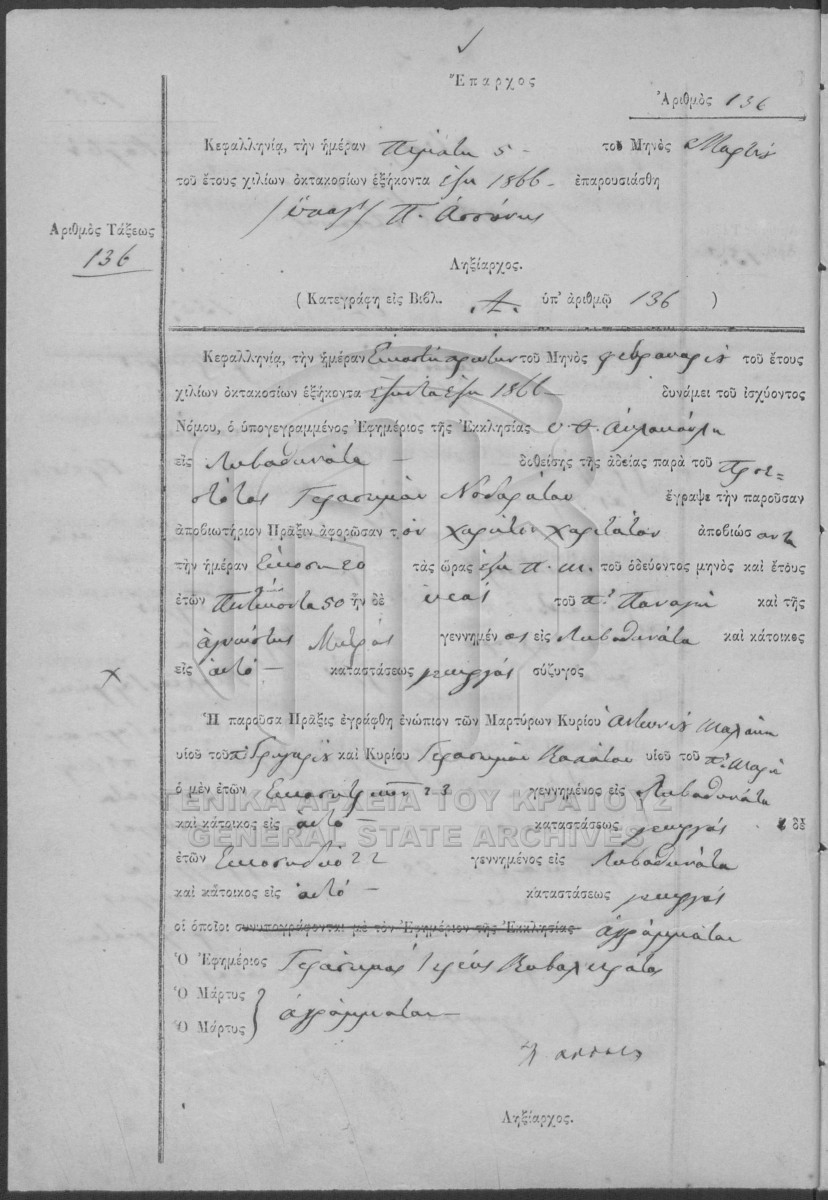 Ἔπαρχος
Ἀριθμὸς 136
Κεφαλληνίᾳ, τὴν ἡμέραν Πέμπτη 5 - τοῦ Μηνὸς Μαρτίου
τοῦ ἔτους χιλίων ὀκτακοσίων ἑξήκοντα ἕξη 1866 - ἐπαρουσιάσθη
Π.
Ἀριθμὸς Τάξεως
136
Ληξίαρχος.
(Κατεγράφη εἰς Βιβλ. Α. ὑπ' ἀριθμῷ 136 )
Κεφαλληνίᾳ, τὴν ἡμέραν Εἰκοστήπρώτην τοῦ Μηνὸς φεβρουαρίου τοῦ ἔτους
χιλίων ὀκτακοσίων ἑξήκοντα ἕξη 1866 - δυνάμει τοῦ ἰσχύοντος
Νόμου, ὁ ὑπογεγραμμένος Ἐφημέριος τῆς Ἐκκλησίας
εἰς Λιβαθινάτα - δοθείσης τῆς ἀδείας παρὰ τοῦ Πρωτ=
Γερασίμου Νοδαράτου ἔγραψε τὴν παροῦσαν
ἀποβιωτήριον Πρᾶξιν ἀφορῶσαν τὸν Χαρίτον Χαριτάτον ἀποβιώσαντα
τὴν ἡμέραν Εἴκοση 20 τὰς ὥρας ἕξη π. μ. τοῦ ὁδεύοντος μηνὸς καὶ ἔτους
ἐτῶν Πεντήκοντα 50 ἦν δὲ υἱὸς τοῦ π. Παναγῆ καὶ τῆς
ἀγνώστης Μητρός γεννημένος εἰς Λιβαθινάτα καὶ κάτοικος
εἰς αὐτό - καταστάσεως γεωργός σύζυγος
Ἡ παροῦσα Πρᾶξις ἐγράφθη ἐνώπιον τῶν Μαρτύρων Κυρίου Ἀντωνίου
υἱοῦ τοῦ π. Γρηγορίου καὶ Κυρίου Γερασίμου υἱοῦ τοῦ π.
ὁ μὲν ἐτῶν Εἰκοσητριῶν 23 γεννημένος εἰς Λιβαθινάτα
καὶ κάτοικος εἰς αὐτό - καταστάσεως γεωργός ὁ δὲ
ἐτῶν Εἰκοσηδύο 22 γεννημένος εἰς Λιβαθινάτα
καὶ κάτοικος εἰς αὐτό - καταστάσεως γεωργός
οἱ ὁποῖοι συνυπογράφονται μὲ τὸν Ἐφημέριον τῆς Ἐκκλησίας ἀγράμματοι
Ὁ Ἐφημέριος Γεράσιμος Ἱερεὺς
Ὁ Μάρτυς
Ὁ Μάρτυς ἀγράμματοι
Ληξίαρχος.
ΓΕΝΙΚΑ ΑΡΧΕΙΑ ΤΟΥ ΚΡΑΤΟΥΣ
GENERAL STATE ARCHIVES